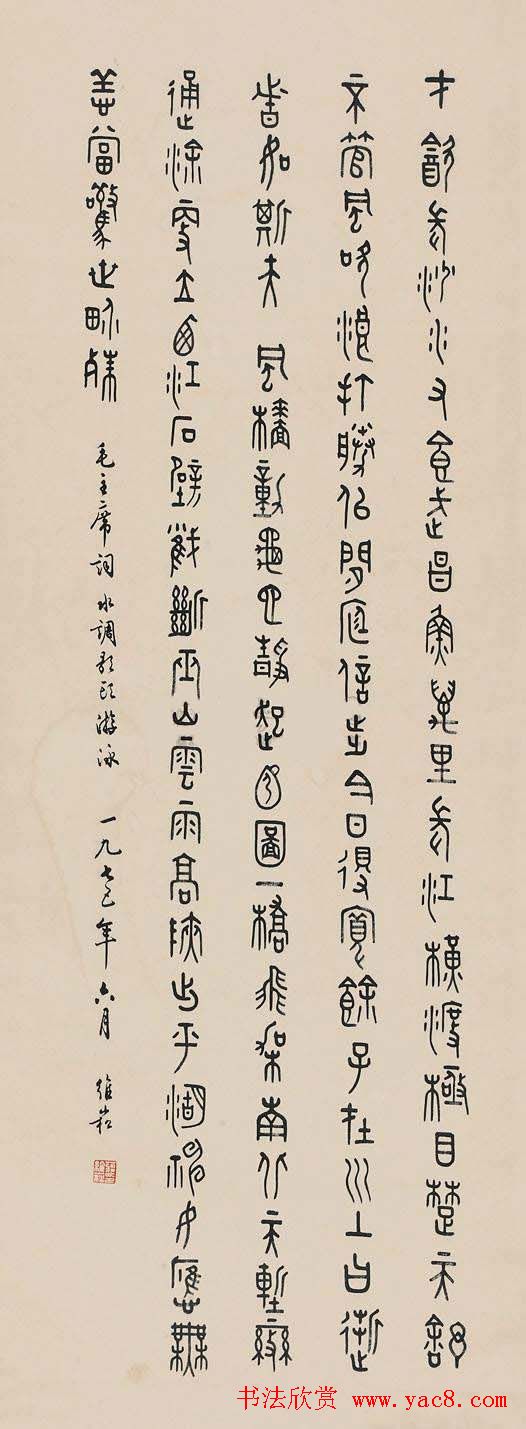 才飲長沙水又食武昌魚萬里長江橫渡極目楚天舒
不管風吹浪打勝似閒庭信步今日得寬餘子在川上曰逝
者如斯夫 風檣動龜蛇靜起宏圖一橋飛架南北天塹變
通途更立西江石壁截斷巫山雲雨高峽出平湖神女應無
恙當驚世界殊 毛主席詞水調歌頭游泳 一九七年六月 維崧
书法欣赏 www.yac8.com